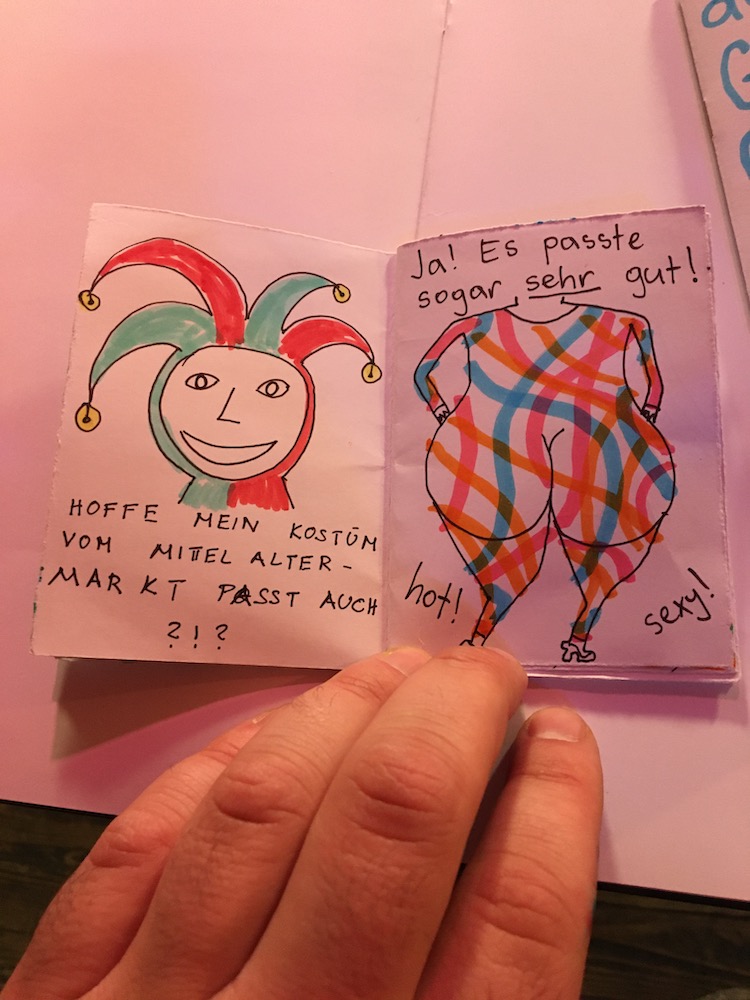 HOFFE MEIN KOSTÜM
VOM MITTEL ALTER-
MARKT PASST AUCH
?!?
Ja! Es passte
sogar sehr gut!
hot!
sexy!